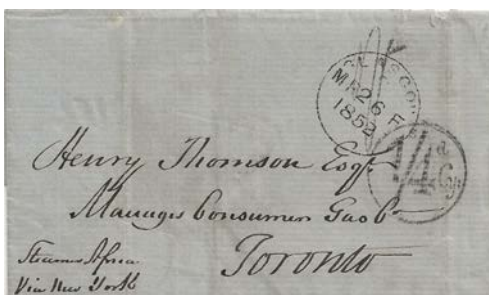 GLASGOW
MR 26 F
1852
14d Cy
Henry Thomson Esqr
Manager Consumers Gas Co
Toronto
Steamer Africa
Via New York